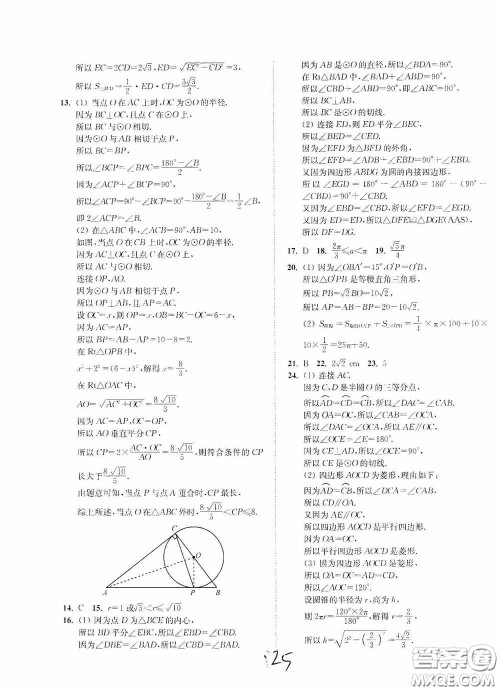 所以 EC=2CD=2√3,ED=√(EC²-CD²)=3,
所以 S△ECD=1/2·ED·CD=3√3/2.
13. (1) 当点 O 在 AC 上时,OC 为⊙O 的半径.
因为 BC⊥OC,且点 C 在⊙O 上,
所以 BC 与⊙O 相切.
因为⊙O 与 AB 相切于点 P,
所以 BC=BP,
所以∠BCP=∠BPC=(180°-∠B)/2.
因为∠ACP+∠BCP=90°,
所以∠ACP=90°-∠BCP=90°-(180°-∠B)/2=1/2∠B,
即 2∠ACP=∠B.
(2) 在△ABC 中,∠ACB=90°,AB=10,
如图,当点 O 在 CB 上时,OC 为⊙O 的半径.
因为 AC⊥OC,且点 C 在⊙O 上,
所以 AC 与⊙O 相切.
连接 OP,AO.
因为⊙O 与 AB 相切于点 P,
所以 OP⊥AB,且 AP=AC.
设 OC=x,则 OP=x,OB=BC-OC=6-x,
因为 AC=AP,
所以 BP=AB-AP=10-8=2,
在 Rt△OPB 中,
x²+2²=(6-x)²,解得 x=8/3.
在 Rt△OAC 中,
AO=√(AC²+OC²)=8√10/3.
因为 AC=AP,OC=OP,
所以 AO 垂直平分 CP,
所以 CP=2×AC·OC/AO=8√10/5,则符合条件的 CP
长大于8√10/5.
由题意可知,当点 P 与点 A 重合时,CP 最长,
综上所述,当点 O 在△ABC 外时,8√10/5<CP≤8.
C
O
A
P
B
14. C 15. r=1 或√3<r≤√10
16. (1) 因为点 D 为△ABE 的内心,
所以 BD 平分∠EBC,所以∠EBD=∠CBD.
因为∠DBE=∠BAD,所以∠CBD=∠BAD.
因为 AB 是⊙O 的直径,所以∠BDA=90°.
在 Rt△BAD 中,∠BAD+∠ABD=90°,
所以∠CBD+∠ABD=90°,即∠ABC=90°.
所以 BC⊥AB,
所以 BC 是⊙O 的切线.
(2) 连接 ED,则 ED 平分∠BEC,
所以∠BED=∠CED.
因为∠EFD 为△BFD 的外角,
所以∠EFD=∠ADB+∠EBD=90°+∠EBD.
又因为四边形 ABDG 为圆的内接四边形,
所以∠EGD=180°-∠ABD=180°-(90°
-∠CBD)=90°+∠CBD,
因为∠EBD=∠CBD,所以∠EFD=∠EGD.
又因为 ED=ED,所以△DFE≌△DGE(AAS),
所以 DF=DG.
20. (1) 因为∠OBA'=45°,O'P=O'B,
所以△O'PB 是等腰直角三角形,
所以 PB=√2BO=10√2,
所以 AP=AB-BP=20-10√2.
21. B 22. 2√2 cm 23. 5
24. (1) 连接 AC.
因为 C,D 是半圆 O 的三等分点,
所以AD=CD=CB,所以∠DAC=∠CAB.
因为 OA=OC,所以∠CAB=∠OCA,
所以∠DAC=∠OCA,所以 AE∥OC,
所以∠OCE+∠E=180°.
因为∠E=90°,所以∠OCE=90°,
所以 CE 是⊙O 的切线.
(2) 四边形 AOCD 为菱形,理由如下:
因为AD=CB,所以∠DCA=∠CAB,
所以 CD∥OA.
又因为 AE∥OC,
所以四边形 AOCD 是平行四边形.
因为 OA=OC,
所以平行四边形 AOCD 是菱形.
(3) 因为四边形 AOCD 是菱形,
所以 OA=OC=AD=CD=2,
设圆锥的半径为 r,高为 h,
则 2πr=120°×2π/180°,解得 r=2/3.
所以 h=√(2²-(2/3)²)=4√2/3.
25